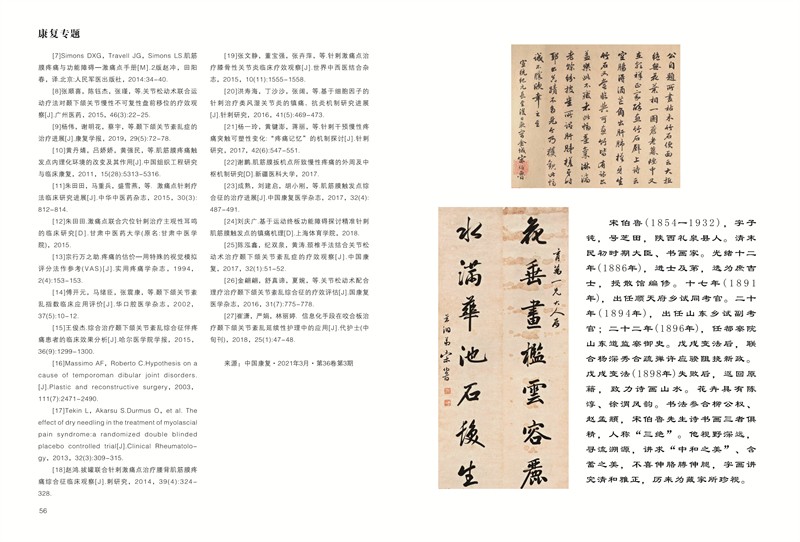 康复专题
[7]Simons DXG, Travell JG, Simons LS.肌筋
膜疼痛与功能障碍—激痛点手册[M].2版赵冲, 田阳
春, 译.北京:人民军医出版社, 2014:34-40.
[8]张顺喜, 陈钰杰, 张瑾, 等.关节松动术联合运
动疗法对颞下颌关节慢性不可复性盘前移位的疗效观
察[J].广州医药, 2015, 46(3):22-25.
[9]杨伟, 谢明花, 蔡宇, 等.颞下颌关节紊乱症的
治疗进展[J].康复学报, 2019, 29(5):72-78.
[10]黄丹婧, 吕娇娇, 黄强民, 等.肌筋膜疼痛触
发点内理化环境的改变及其作用[J].中国组织工程研究
与临床康复, 2011, 15(28):5313-5316.
[11]朱田田, 马重兵, 盛雪燕, 等. 激痛点针刺疗
法临床研究进展[J].中华中医药杂志, 2015, 30(3):
812-814.
[12]朱田田.激痛点联合穴位针刺治疗主观性耳鸣
的临床研究[D].甘肃中医药大学(原名:甘肃中医学
院), 2015.
[13]宗行万之助.疼痛的估价—用特殊的视觉模拟
评分法作参考(VAS)[J].实用疼痛学杂志, 1994,
2(4):153-153.
[14]傅开元, 马绪臣, 张震康, 等.颞下颌关节紊
乱指数临床应用评价[J].华口腔医学杂志, 2002,
37(5):10-12.
[15]王俊杰.综合治疗颞下颌关节紊乱综合征伴疼
痛患者的临床效果分析[J].哈尔滨医学院学报, 2015,
36(9):1299-1300.
[16]Massimo AF, Roberto C.Hypothesis on a
cause of temporoman dibular joint disorders.
[J].Plastic and reconstructive surgery, 2003,
111(7):2471-2490.
[17]Tekin L, Akarsu S.Durmus O, et al. The
effect of dry needling in the treatment of myolascial
pain syndrome:a randomized double blinded
placebo controlled trial[J].Clinical Rheumatolo-
gy, 2013, 32(3):309-315.
[18]赵鸿.拔罐联合针刺激痛点治疗腰背肌筋膜疼
痛综合征临床观察[J].刺研究, 2014, 39(4):324-
328.
56
[19]张文静, 董宝强, 张卉萍, 等.针刺激痛点治
疗膝骨性关节炎临床疗效观察[J].世界中西医结合杂
志, 2015, 10(11):1555-1558.
[20]洪寿海, 丁沙沙, 张阔, 等.基于细胞因子的
针刺治疗类风湿关节炎的镇痛、抗炎机制研究进展
[J].针刺研究, 2016, 41(5):469-473.
[21]杨一玲, 黄健澎, 蒋丽, 等.针刺干预慢性疼
痛突触可塑性变化:“疼痛记忆”的机制探讨[J].针刺
研究, 2017, 42(6):547-551.
[22]谢鹏.肌筋膜扳机点所致慢性疼痛的外周及中
枢机制研究[D].新疆医科大学, 2017.
[23]成熟, 刘建启, 胡小刚, 等.肌筋膜触发点综
合征的治疗进展[J].中国康复医学杂志, 2017, 32(4):
487-491.
[24]刘庆广.基于运动终板功能障碍探讨精准针刺
肌筋膜触发点的镇痛机理[D].上海体育学院, 2018.
[25]陈泓鑫, 纪双泉, 黄涛.颈椎手法综合关节松
动术治疗颞下颌关节紊乱症的疗效观察[J].中国康
复, 2017, 32(1):51-52.
[26]金翩翩, 舒真谛, 夏婉, 等.关节松动术配合
理疗治疗颞下颌关节紊乱综合征的疗效评估[J].国康复
医学杂志, 2016, 31(7):775-778.
[27]崔潇, 严娟, 林丽婷. 信息化手段在咬合板治
疗颞下颌关节紊乱延续性护理中的应用[J].代护士(中
旬刊), 2018, 25(1):47-48.
来源：中国康复·2021年3月·第36卷第3期
花垂画槛云容丽
水满华池石发生
宋伯鲁(1854—1932), 字子
钝, 号芝田, 陕西礼泉县人。清末
民初时期大臣、书画家。光绪十二
年(1886年), 进士及第, 选为庶吉
士, 授散馆编修。十七年(1891
年), 出任顺天府乡试同考官。二十
年(1894年), 出任山东乡试副考
官；二十二年(1896年), 任都察院
山东道监察御史。戊戌变法后, 联
合杨深秀合疏弹许应骙阻挠新政。
戊戌变法(1898年)失败后, 返回原
籍, 致力诗画山水。花卉具有陈
淳、徐渭风韵。书法参合柳公权、
赵孟頫, 宋伯鲁先生诗书画三者俱
精, 人称“三绝”。他视野深远,
寻流溯源, 讲求“中和之美”、含
蓄之美, 不喜伸胳膊伸腿, 字画讲
究清和雅正, 历来为藏家所珍视。